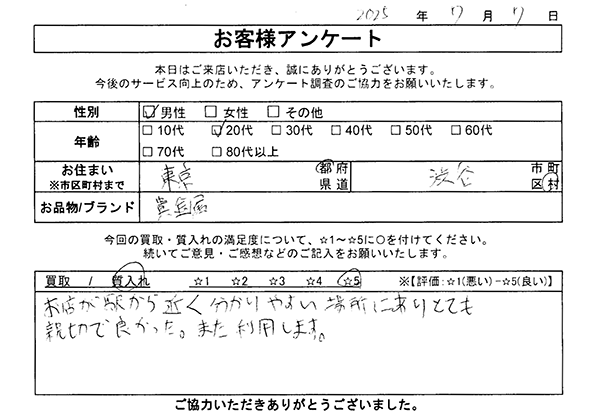 2025 年 17 月 17 日
お客様アンケート
本日はご来店いただき、誠にありがとうございます。
今後のサービス向上のため、アンケート調査のご協力をお願いいたします。
性別 ☑男性 □女性 □その他
年齢 □10代 ☑20代 □30代 □40代 □50代 □60代
□70代 □80代以上
お住まい ※市区町村まで 東京 都府県道 渋谷 市町区村
お品物/ブランド 貴金属
今回の買取・質入れの満足度について、☆1～☆5に○を付けてください。
続いてご意見・ご感想などのご記入をお願いいたします。
買取 / 質入れ ☆1 ☆2 ☆3 ☆4 ☆5 ※【評価:☆1(悪い)－☆5(良い)】
お店が駅から近く分かりやすい場所にありとても
親切で良かった。また利用します。
ご協力いただきありがとうございました。